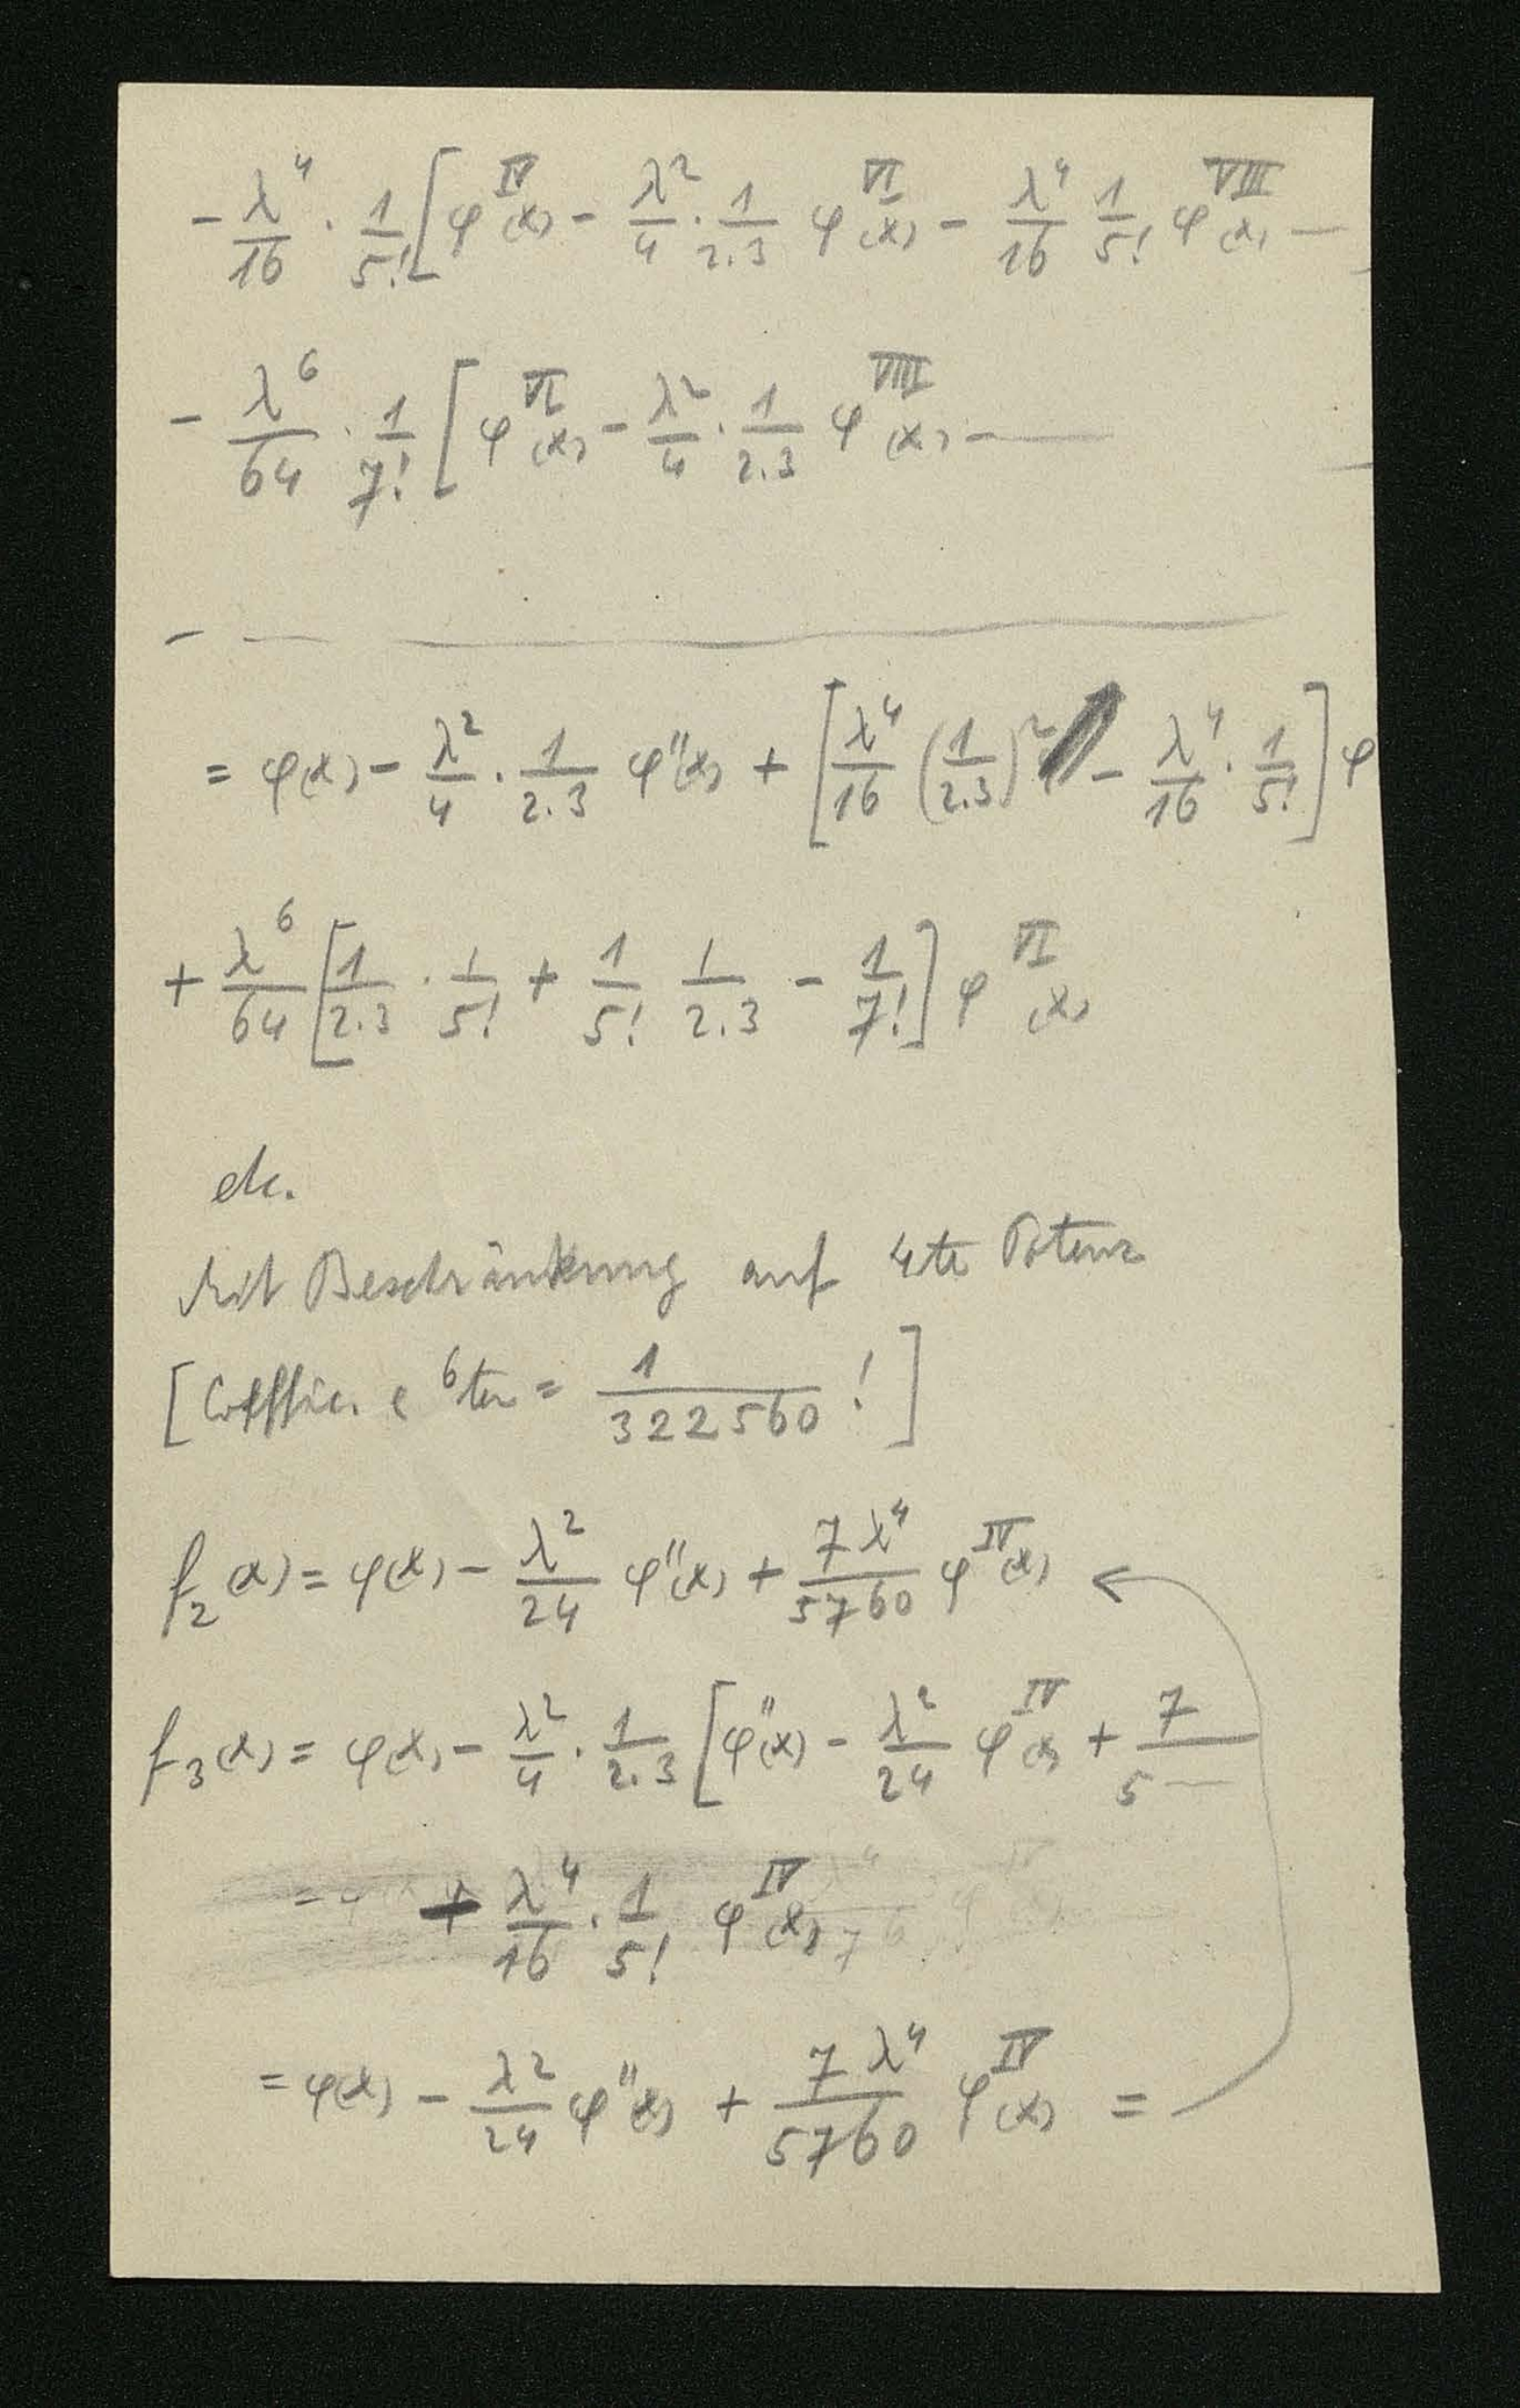 − λ⁴/16 · 1/5! [φ^IV(x) − λ²/4 · 1/2.3 φ^VI(x) − λ⁴/16 1/5! φ^VIII(x) —
− λ⁶/64 · 1/7! [φ^VI(x) − λ²/4 · 1/2.3 φ^VIII(x) - —
= φ(x) − λ²/4 · 1/2.3 φ''(x) + [λ⁴/16 (1/2.3)² − λ⁴/16 · 1/5!] φ
+ λ⁶/64 [1/2.3 · 1/5! + 1/5! 1/2.3 − 1/7!] φ^VI(x)
etc.
Mit Beschränkung auf 4te Potenz
[Coeffic. 6ten = 1/322560 !]
f₂(x) = φ(x) − λ²/24 φ''(x) + 7λ⁴/5760 φ^IV(x) ←
f₃(x) = φ(x) − λ²/4 · 1/2.3 [φ''(x) − λ²/24 φ^IV(x) + 7/5—
+ λ⁴/16 · 1/5! φ^IV(x)
= φ(x) − λ²/24 φ''(x) + 7λ⁴/5760 φ^IV(x) =